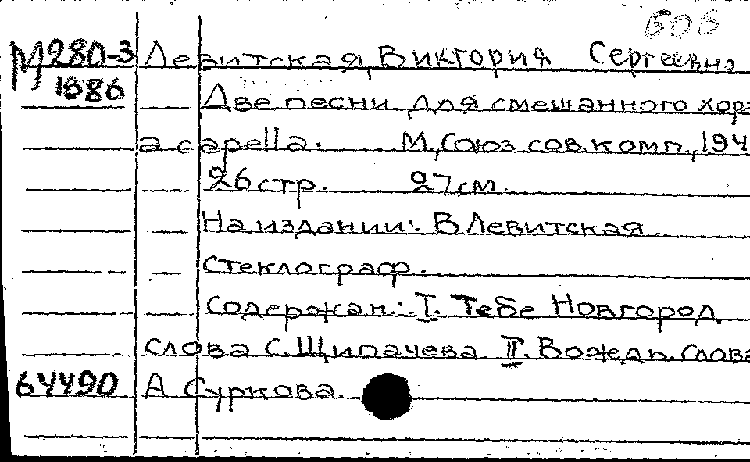 606
М280-3 Левитская, Виктория Сергеевна
1086 Две песни для смешанного хора
a capella. М, Союз сов. комп., 194
26 стр. 27 см.
На издании: В Левитская
Стеклограф.
Содержан: I. Тебе Новгород
слова С. Щипачева II. Вождь. слова
64490 А Суркова.